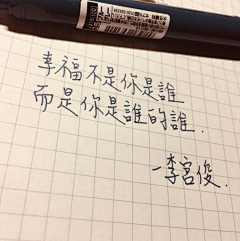 幸福不是你是誰
而是你是誰的誰.
-李宮俊.